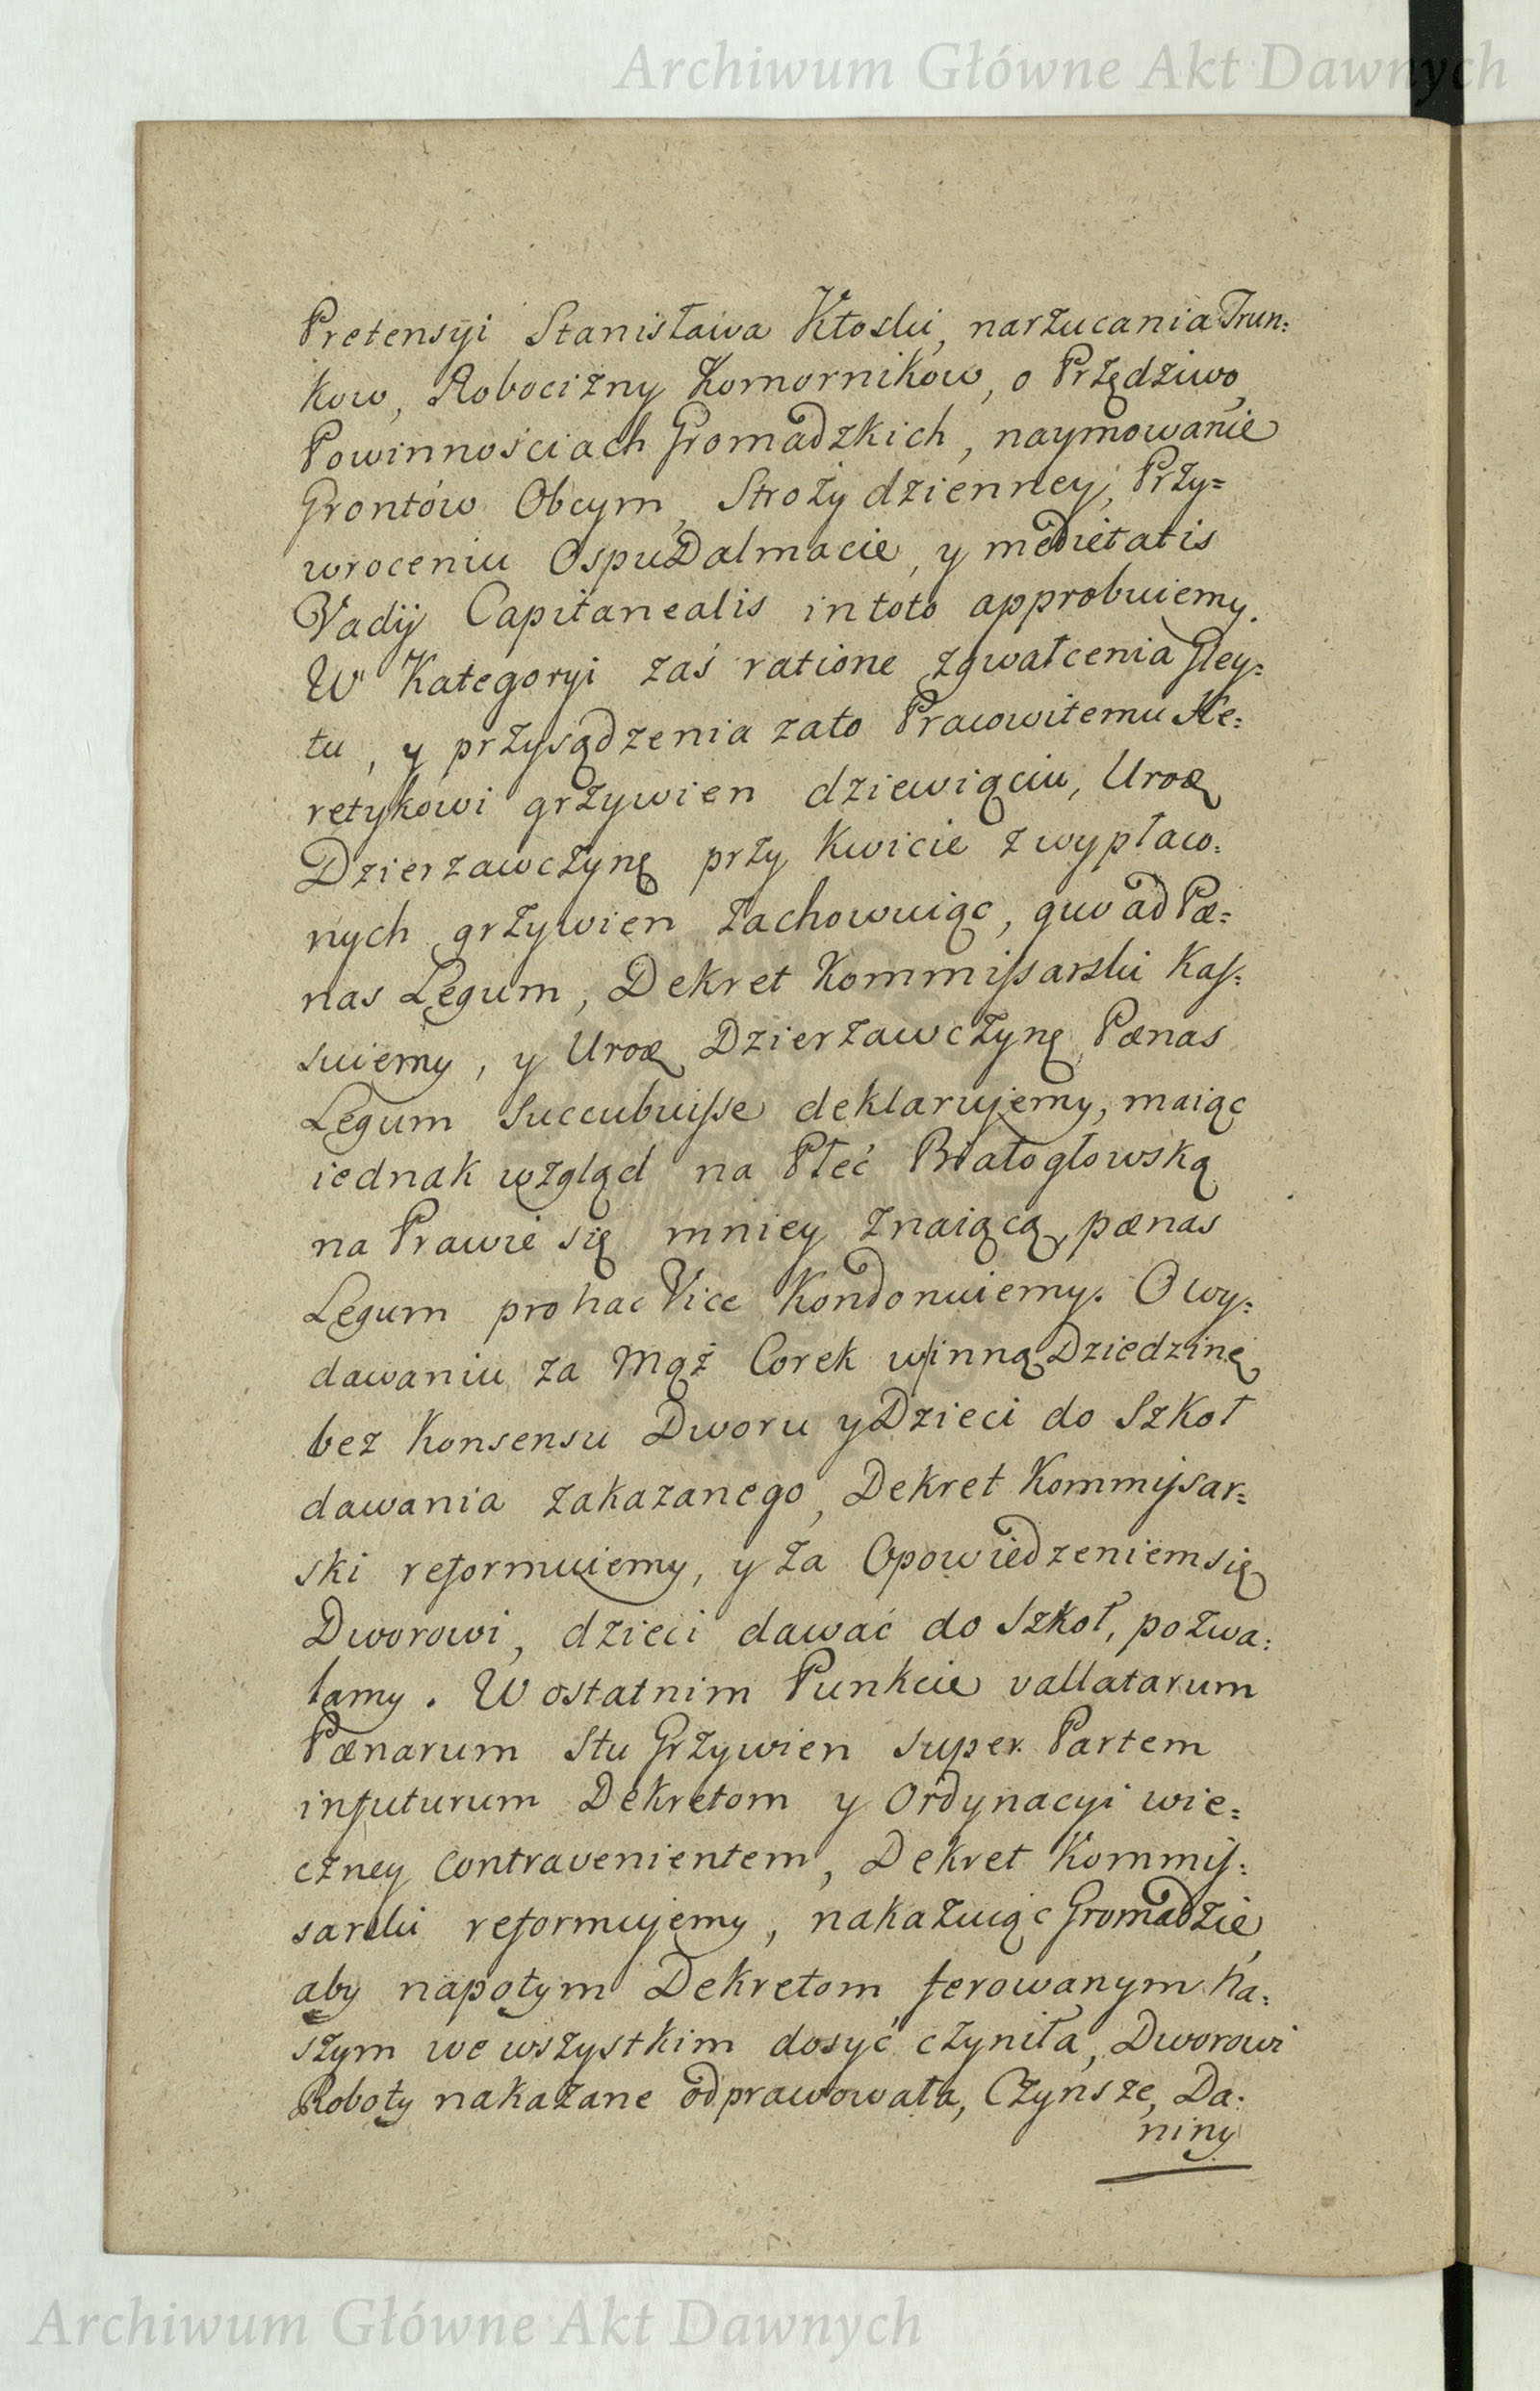 Archiwum Główne Akt Dawnych
Pretensyi Stanisława Kłoski, narzucania Trun:
kow, Robocizny Komornikow, o Przędziwo,
Powinnościach Gromadzkich, naymowanie
Grontów Obcym, Stroży dzienney, Przy=
wroceniu Ospu Dalmacie, y medietatis
Vadij Capitanealis in toto approbuiemy.
W Kategoryi zaś ratione zgwałcenia Gley:
tu, y przysądzenia zato Pracowitemu He:
retykowi grzywien dziewiąciu, Uroą
Dzierzawczynę przy Kwicie z wypłaco:
nych grzywien zachowuiąc, quo ad Pæ=
nas Legum, Dekret Kommissarski Kas:
suiemy, y Uroą Dzierzawczynę Pænas
Legum Succubuisse deklarujemy, maiąc
iednak wzgląd na Płeć Białogłowską
na Prawie się mniey znaiącą, pænas
Legum pro hac Vice Kondonuiemy. O wy:
dawaniu za Mąż Corek w inną Dziedzinę
bez Konsensu Dworu y Dzieci do Szkoł
dawania zakazanego, Dekret Kommissar=
ski reformuiemy, y za Opowiedzeniem się
Dworowi, dzieci dawać do Szkoł, pozwa:
lamy. W ostatnim Punkcie vallatarum
Pænarum Stu Grzywien super Partem
infuturum Dekretom y Ordynacyi wie=
czney contravenientem, Dekret Kommis:
sarski reformujemy, nakazuiąc Gromadzie,
aby napotym Dekretom ferowanym Na:
szym we wszystkim dosyć czyniła, Dworowi
Roboty nakazane odprawowała, Czynsze, Da:
niny
Archiwum Główne Akt Dawnych